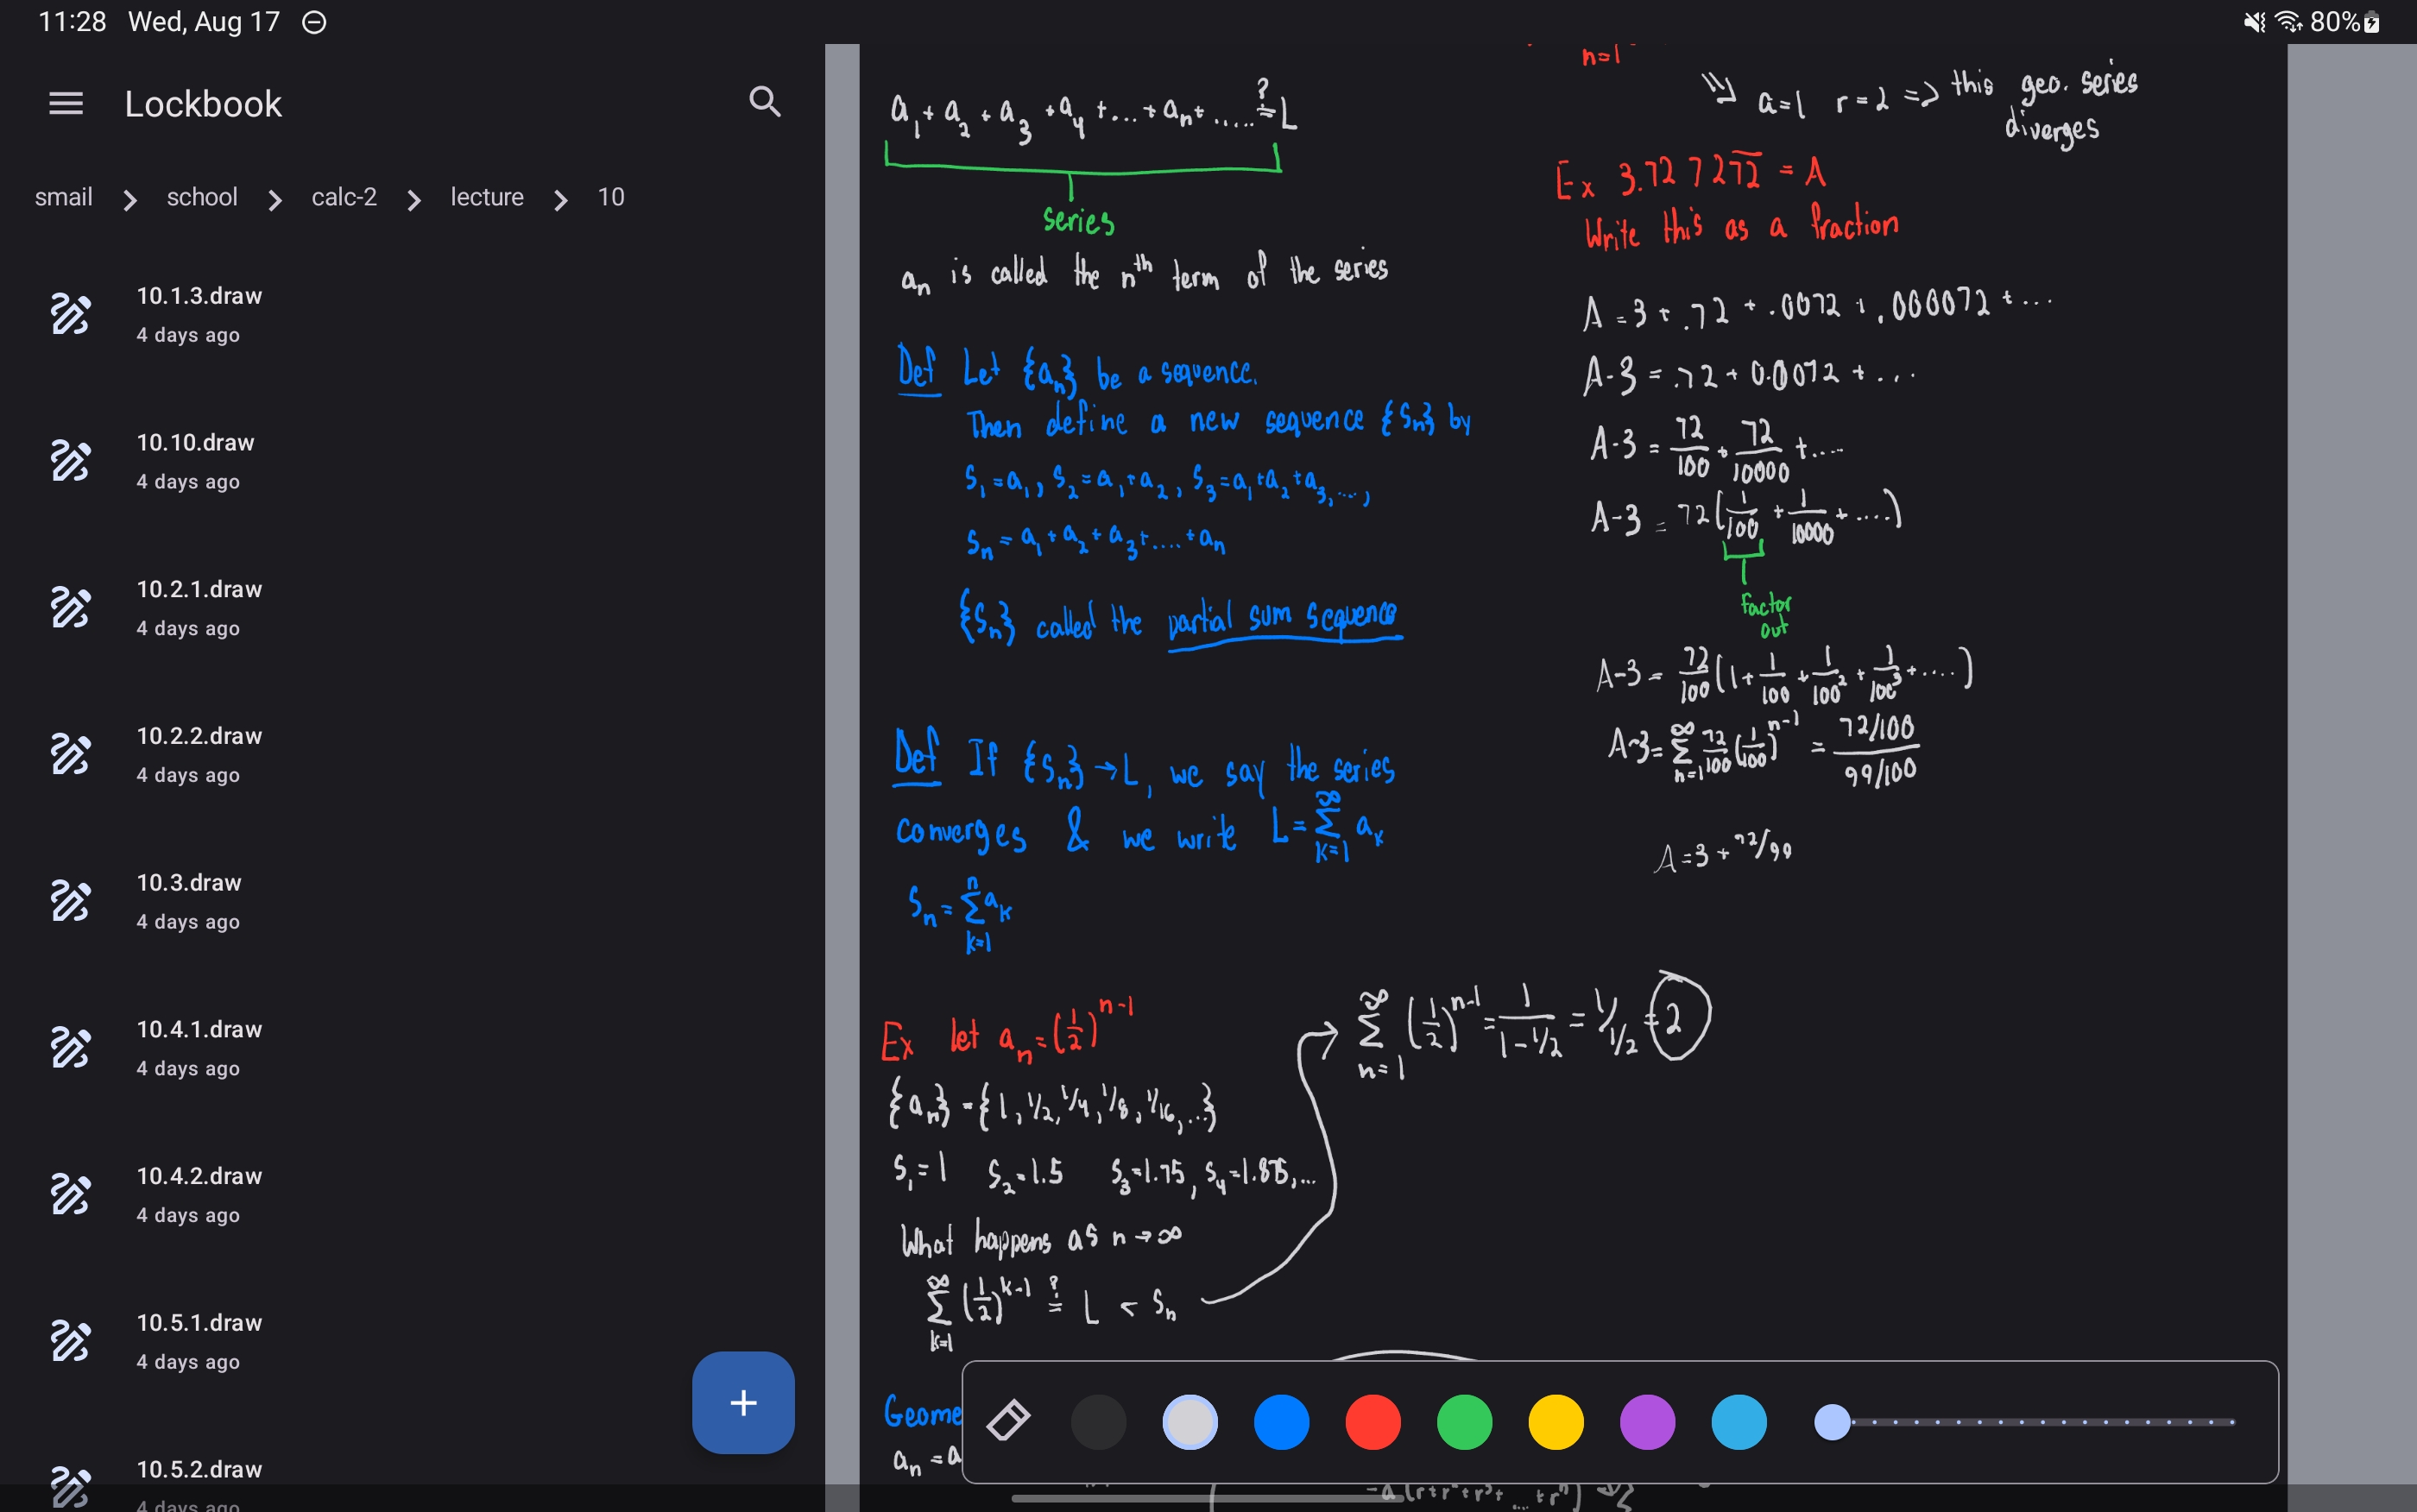 11:28 Wed, Aug 17
80%
Lockbook
smail > school > calc-2 > lecture > 10
10.1.3.draw
4 days ago
10.10.draw
4 days ago
10.2.1.draw
4 days ago
10.2.2.draw
4 days ago
10.3.draw
4 days ago
10.4.1.draw
4 days ago
10.4.2.draw
4 days ago
10.5.1.draw
4 days ago
10.5.2.draw
4 days ago
+
a₁ + a₂ + a₃ + a₄ + ... + aₙ + ..... ≟ L
series
aₙ is called the nᵗʰ term of the series
Def Let {aₙ} be a sequence.
Then define a new sequence {Sₙ} by
S₁ = a₁, S₂ = a₁ + a₂, S₃ = a₁ + a₂ + a₃, ...,
Sₙ = a₁ + a₂ + a₃ + .... + aₙ
{Sₙ} called the partial sum sequence
Def If {Sₙ} → L, we say the series
converges & we write L = ∞ Σ k=1 aₖ
Sₙ = n Σ k=1 aₖ
Ex let aₙ = (1/2)ⁿ⁻¹
{aₙ} = {1, 1/2, 1/4, 1/8, 1/16, ...}
S₁ = 1 S₂ = 1.5 S₃ = 1.75, S₄ = 1.875, ...
What happens as n → ∞
∞ Σ k=1 (1/2)ᵏ⁻¹ ≟ L < Sₙ
∞ Σ n=1 (1/2)ⁿ⁻¹ = 1/(1 - 1/2) = 1/1/2 = 2
Geome
aₙ = a
n=1
a=1 r=2 => this geo. series
diverges
Ex 3.72 727̅2̅ = A
Write this as a fraction
A = 3 + .72 + .0072 + .000072 + ...
A-3 = .72 + 0.0072 + ...
A-3 = 72/100 + 72/10000 + ....
A-3 = 72(1/100 + 1/10000 + ....)
factor
out
A-3 = 72/100 (1 + 1/100 + 1/100² + 1/100³ + ....)
A-3 = ∞ Σ n=1 72/100 (1/100)ⁿ⁻¹ = 72/100 / 99/100
A = 3 + 72/99